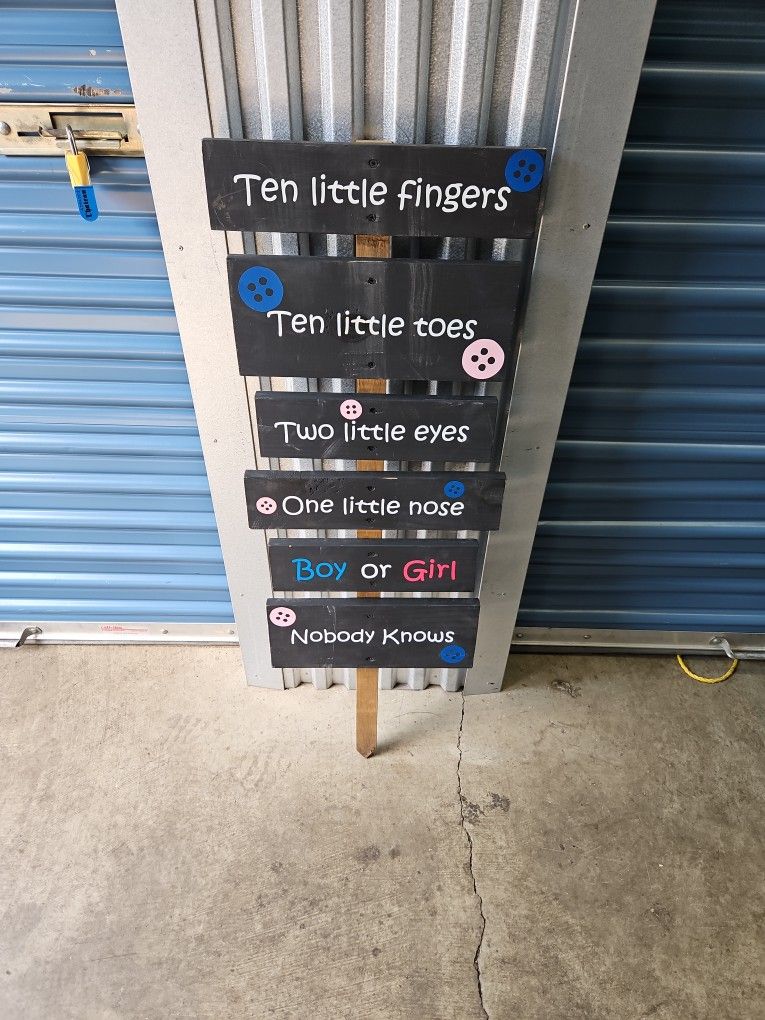 Ten little fingers
Ten little toes
Two little eyes
One little nose
Boy or Girl
Nobody Knows